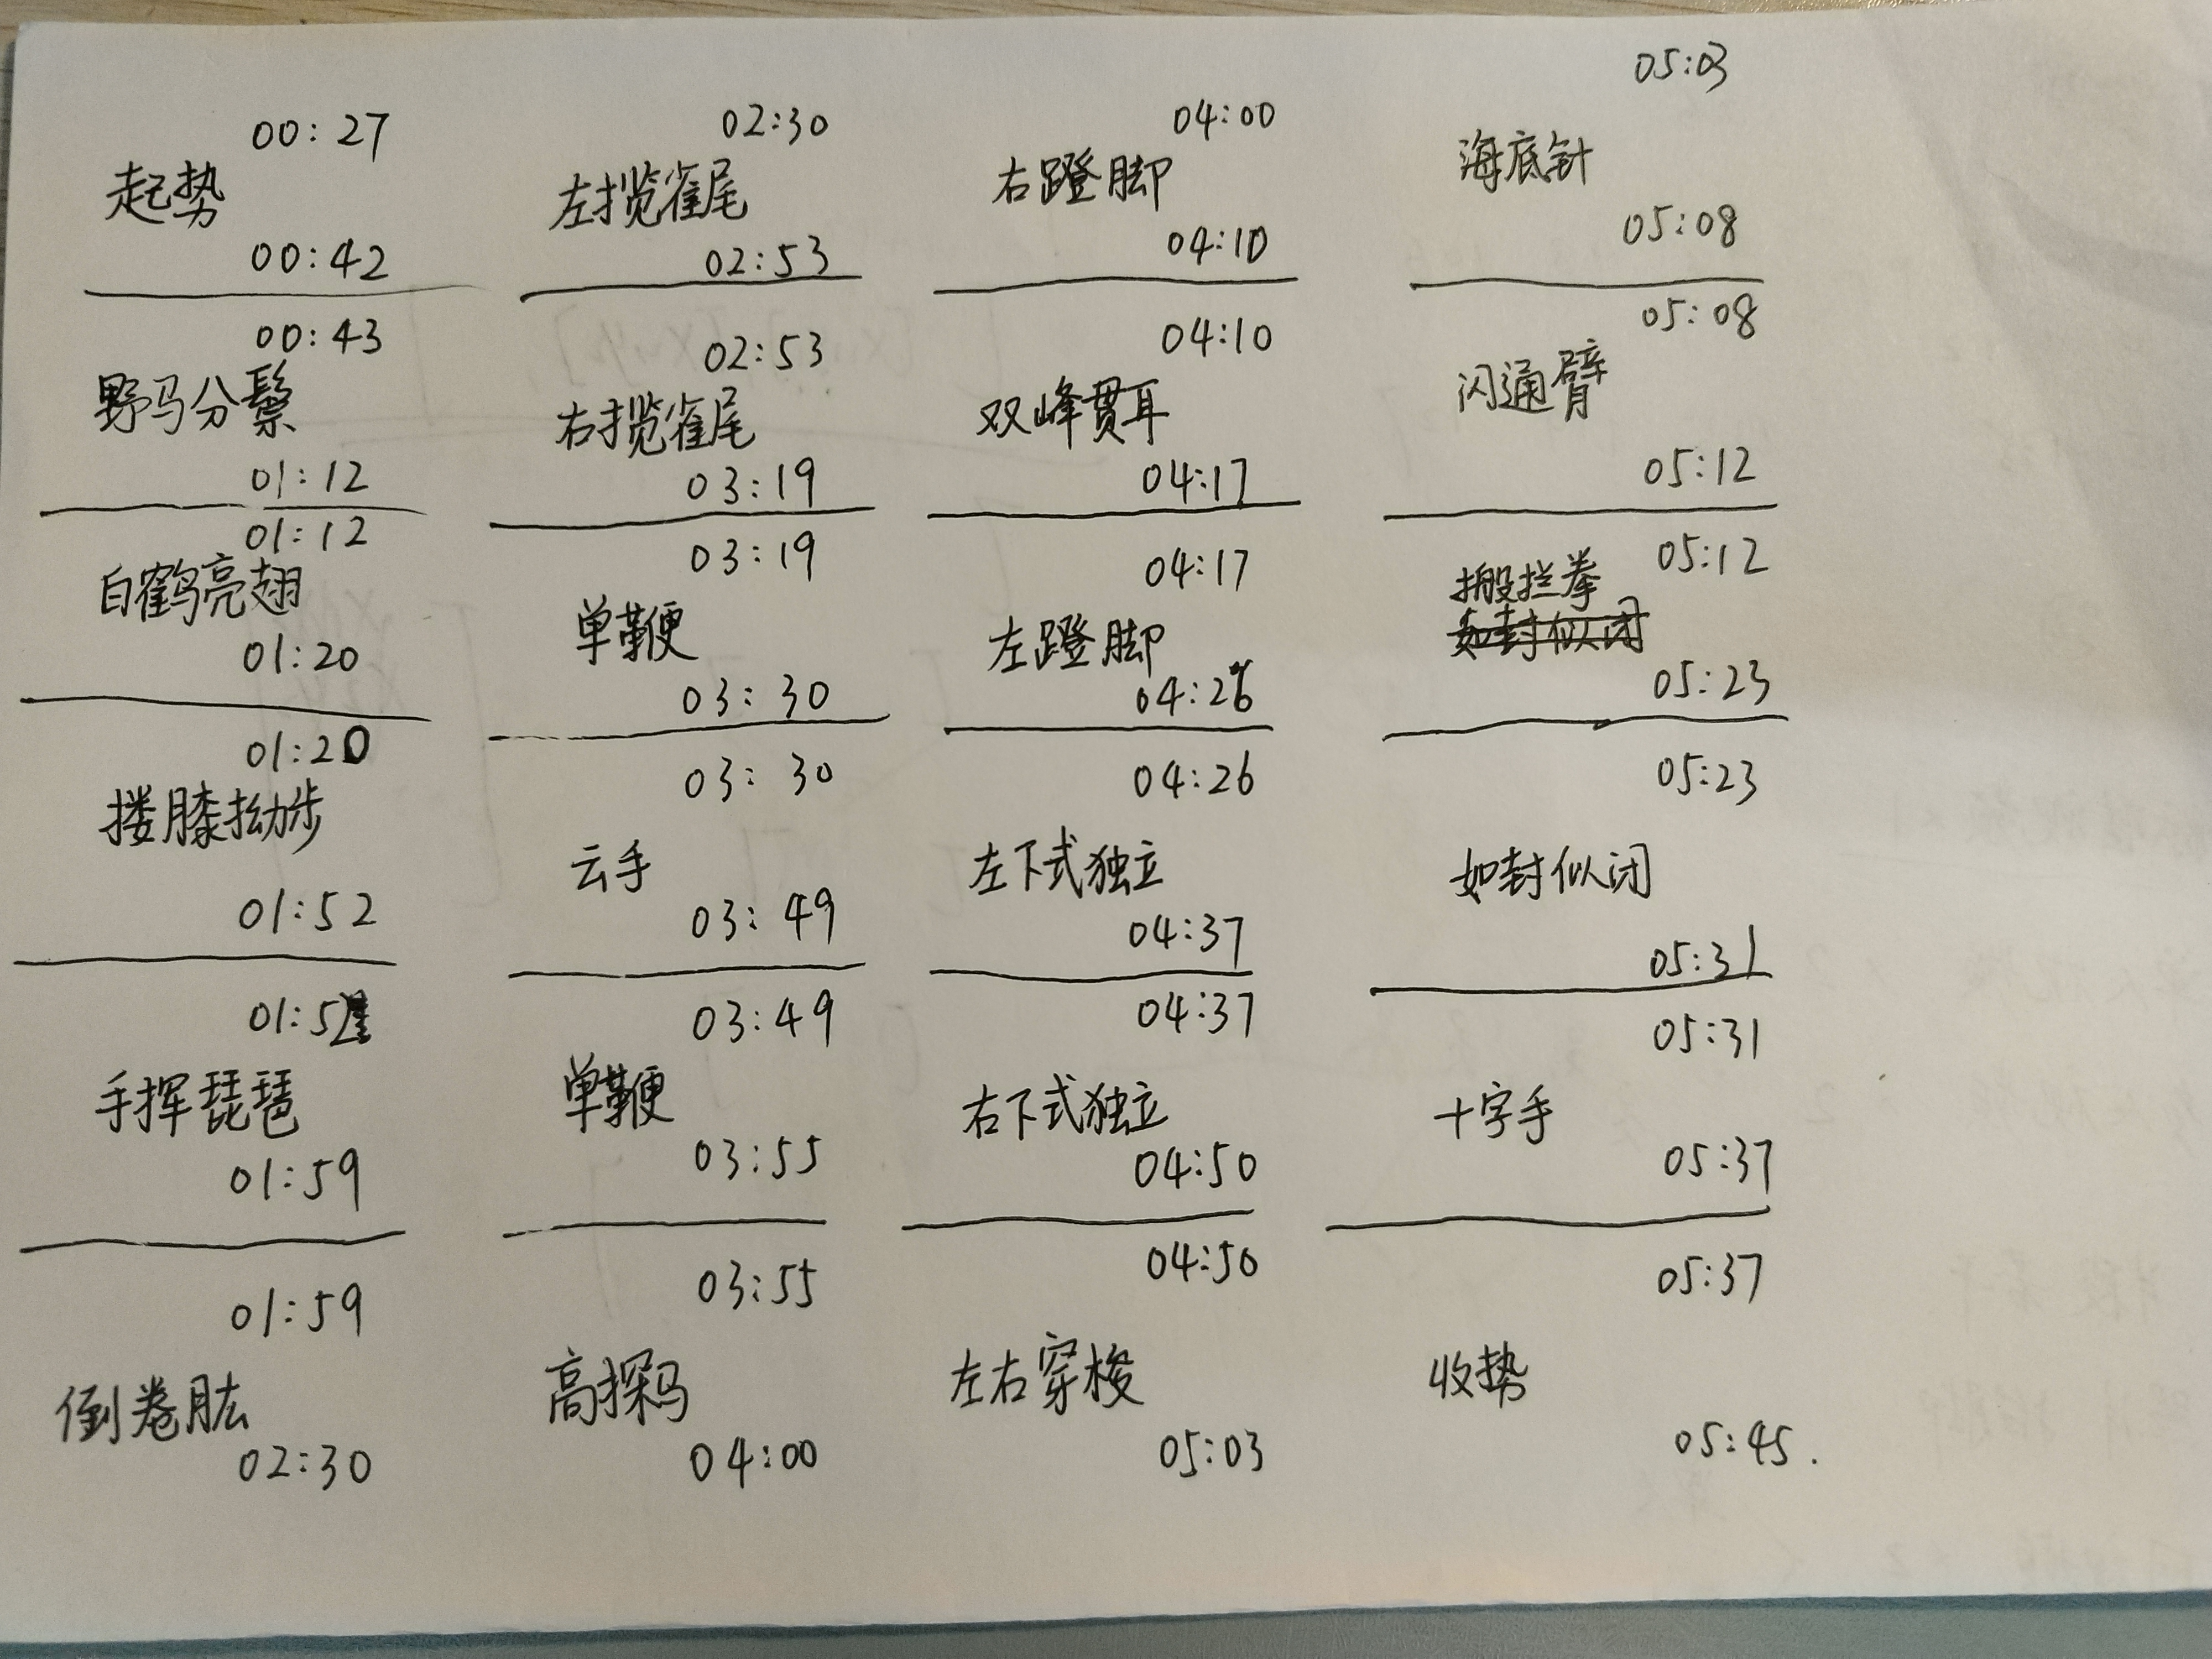 00:27
起势
00:42
00:43
野马分鬃
01:12
01:12
白鹤亮翅
01:20
01:20
搂膝拗步
01:52
01:52
手挥琵琶
01:59
01:59
倒卷肱
02:30
02:30
左揽雀尾
02:53
02:53
右揽雀尾
03:19
03:19
单鞭
03:30
03:30
云手
03:49
03:49
单鞭
03:55
03:55
高探马
04:00
04:00
右蹬脚
04:10
04:10
双峰贯耳
04:17
04:17
左蹬脚
04:26
04:26
左下式独立
04:37
04:37
右下式独立
04:50
04:50
左右穿梭
05:03
05:03
海底针
05:08
05:08
闪通臂
05:12
05:12
搬拦拳
如封似闭
05:23
05:23
如封似闭
05:31
05:31
十字手
05:37
05:37
收势
05:45.